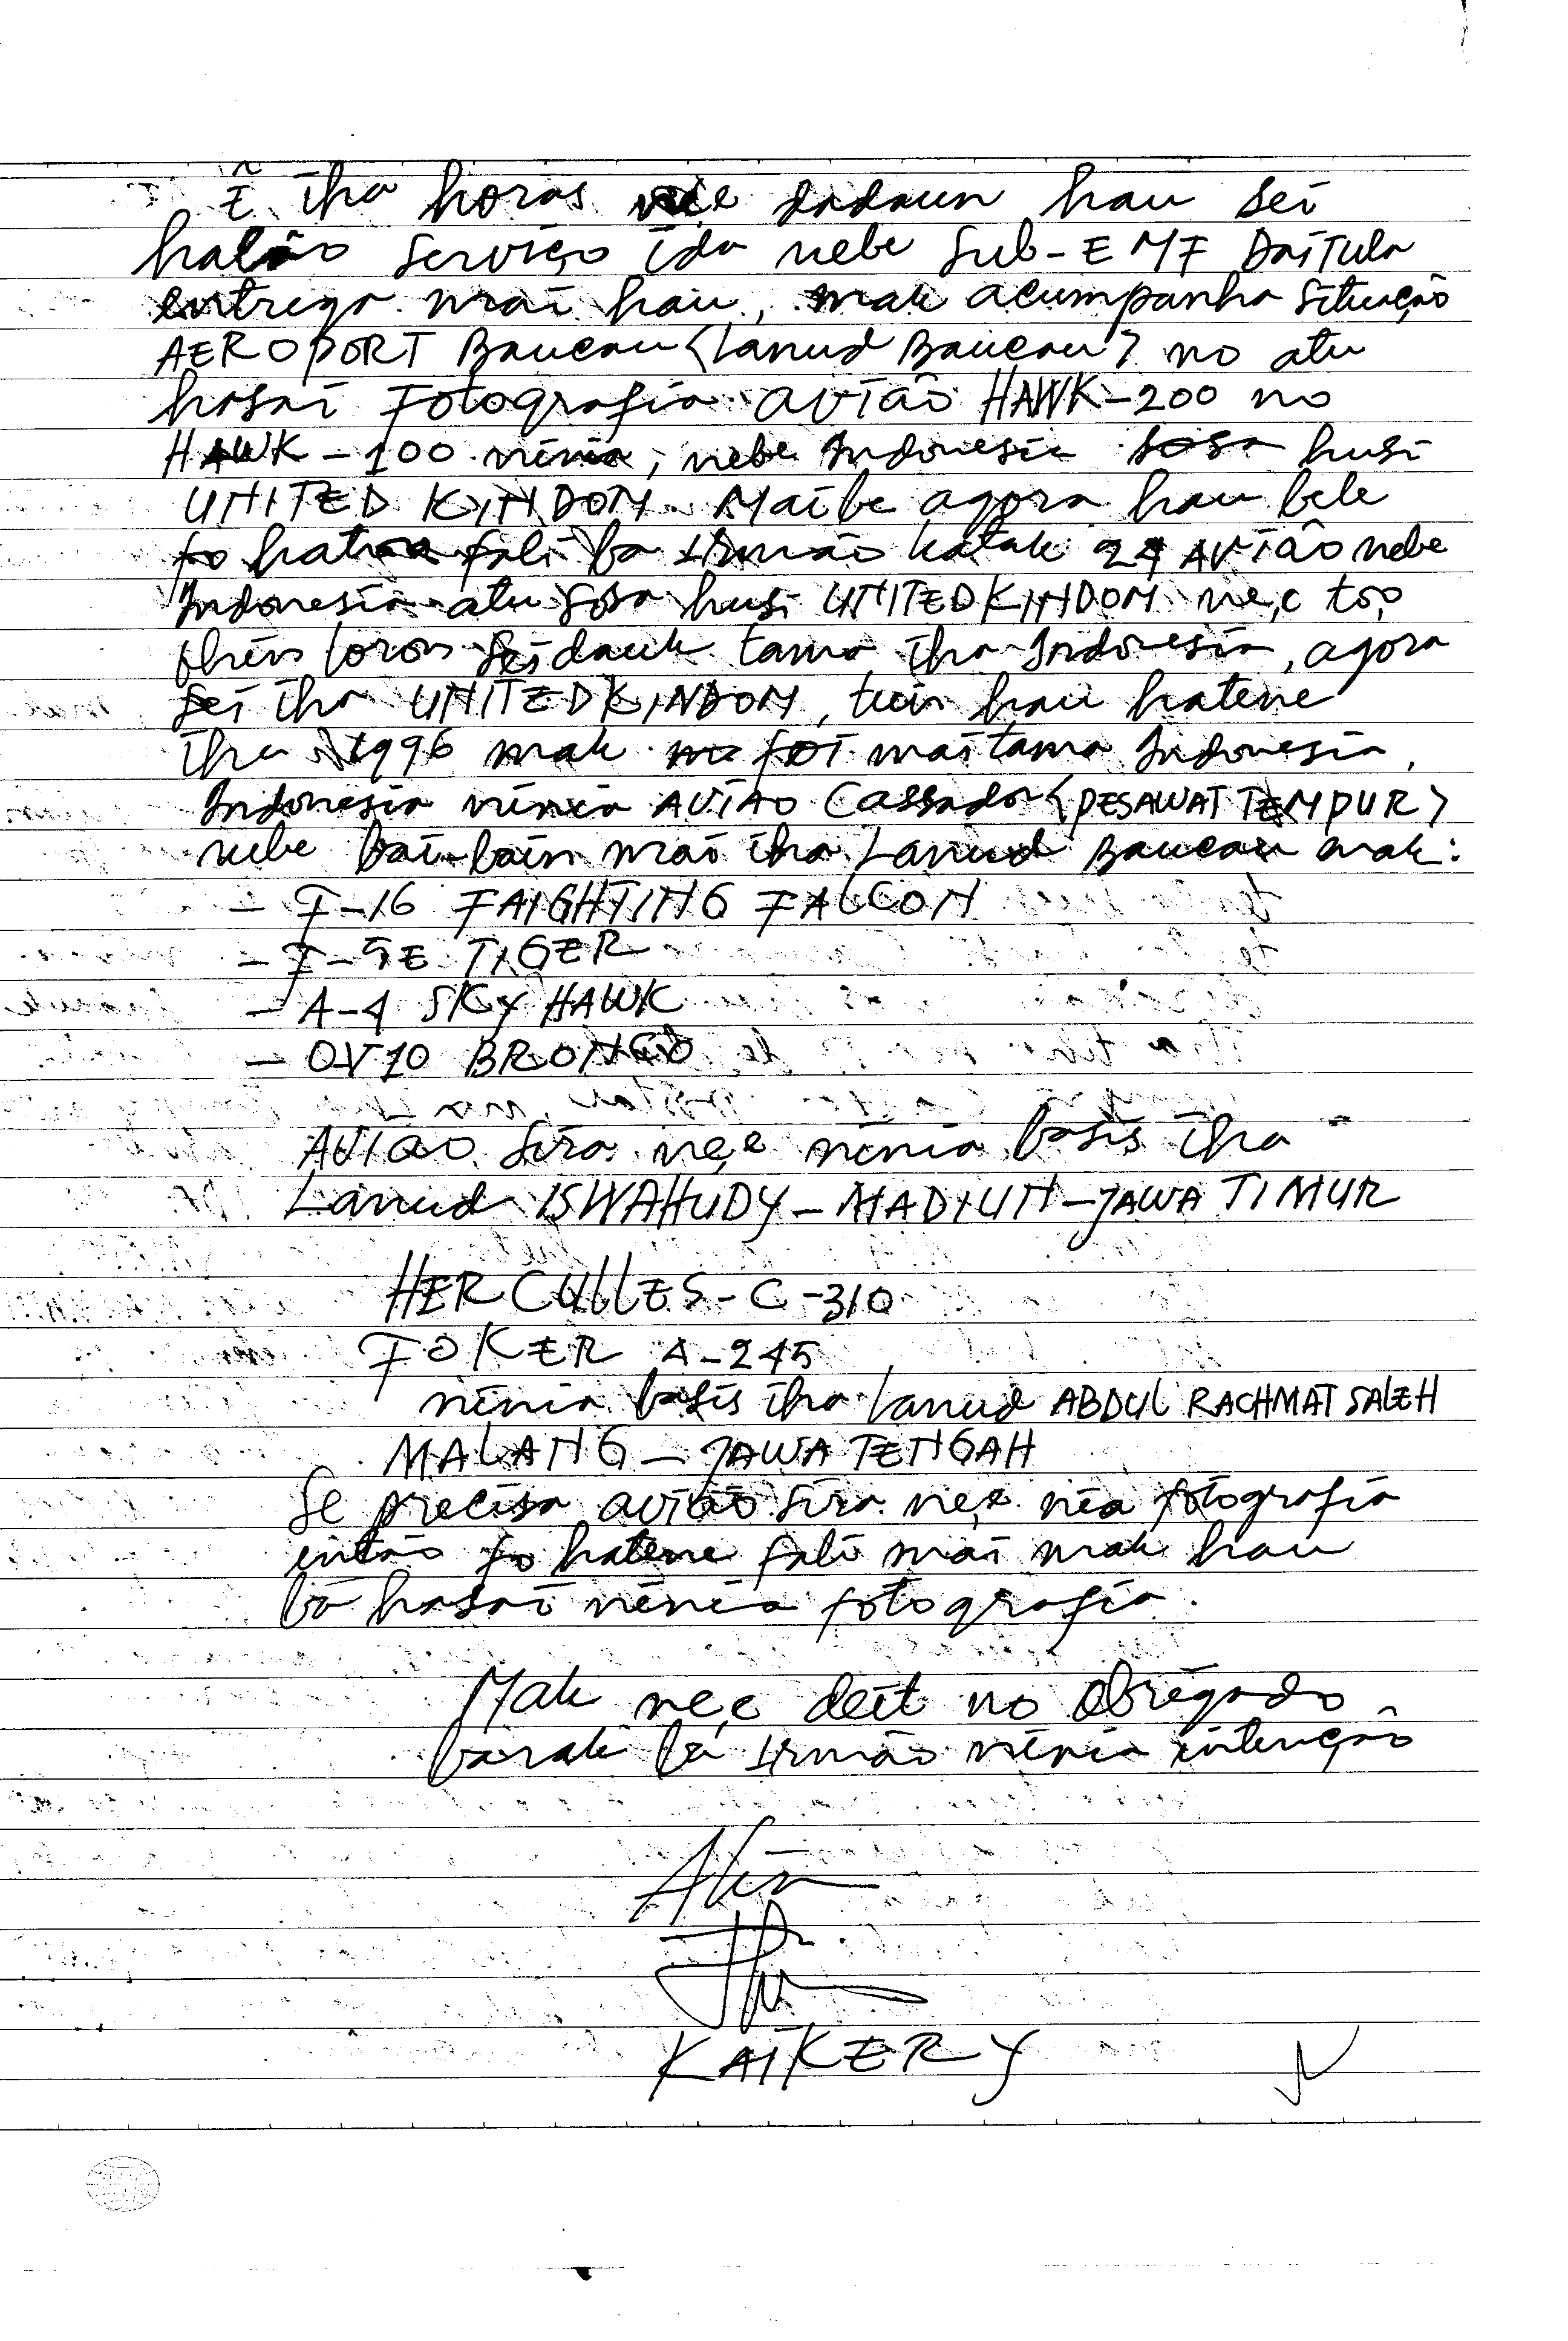 Ĩ iha horas ne,e dadaun hau sei
halao serviço ida nebe Sub-EMF Daitula
entrega mai hau, mak acumpanha situação
AEROPORT Baucau <Lanud Baucau> no atu
hasai Fotografia avião HAWK-200 no
HAWK-100 ninia, nebe Indonesia sosa husi
UNITED KINDOM. Maibe agora hau bele
fo hatene fali ba Irmão katak 24 AVIÃO nebe
Indonesia atu sosa husi UNITEDKINDOM ne,e to,o
ohin loron seidauk tama iha Indonesia, agora
sei iha UNITEDKINDOM, tuir hau hatene
iha 1996 mak foi mai tama Indonesia,
Indonesia ninia AVIÃO Cassador <PESAWAT TEMPUR>
nebe bai-bain mai iha Lanud Baucau mak:
- F-16 FAIGHTING FALCON
- F-5E TIGER
- A-4 SKY HAWK
- OV10 BRONCO
AVIÃO sira ne,e ninia basis iha
Lanud ISWAHUDY-MADIUN-JAWA TIMUR
HERCULLES-C-310
FOKER A-245
ninia basis iha Lanud ABDUL RACHMAT SALEH
MALANG-JAWA TENGAH
Se precisa avião sira ne,e nia fotografia
então fo hatene fali mai mak hau
bá hasai ninia fotografia.
Mak ne,e deit no Obrigado
barak bá Irmão ninia intenção
KAIKERY